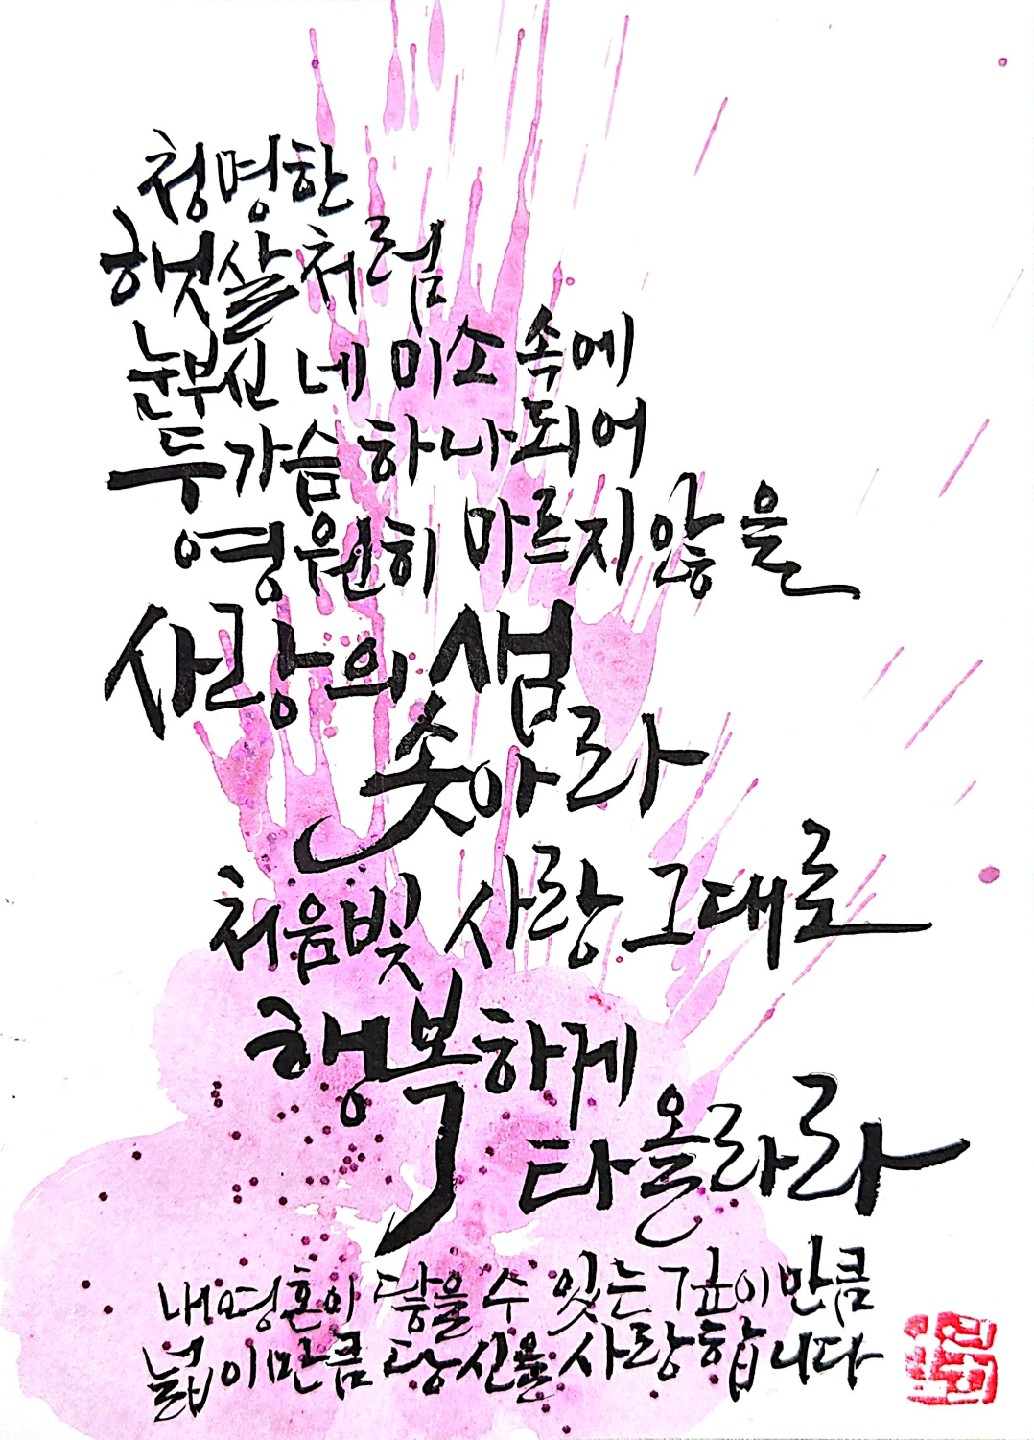 청명한
햇살처럼
눈부신 네 미소 속에
두 가슴 하나되어
영원히 마르지 않을
사랑의 샘
솟아라
처음빛 사랑 그대로
행복하게
타올라라
내 영혼이 닿을 수 있는 깊이만큼
넓이만큼 당신을 사랑합니다